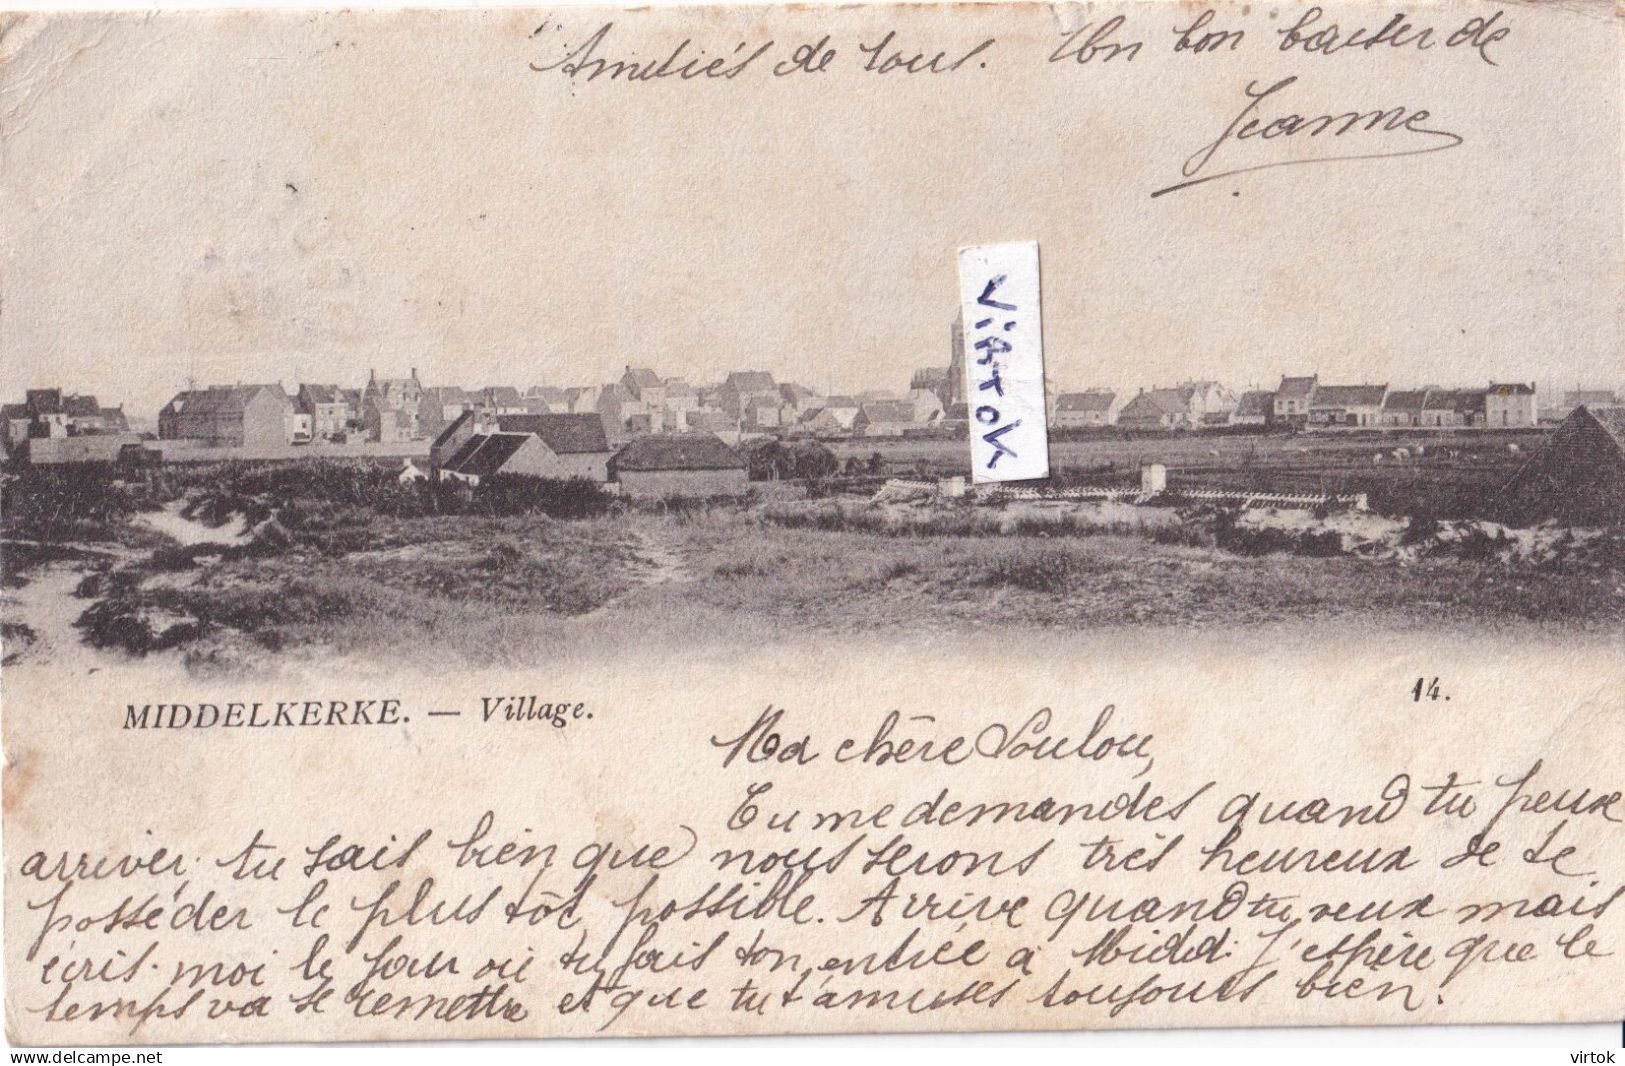 Amitiés de tous. Un bon baiser de
Jeanne
VIRTOK
MIDDELKERKE. — Village.
14.
Ma chère Loulou,
Tu me demandes quand tu peux
arriver, tu sais bien que nous serons très heureux de te
posséder le plus tôt possible. Arrive quand tu veux mais
écris-moi le jour où tu fais ton entrée à Midd. J'espère que le
temps va se remettre et que tu t'amuses toujours bien.
delcampe.net
virtok